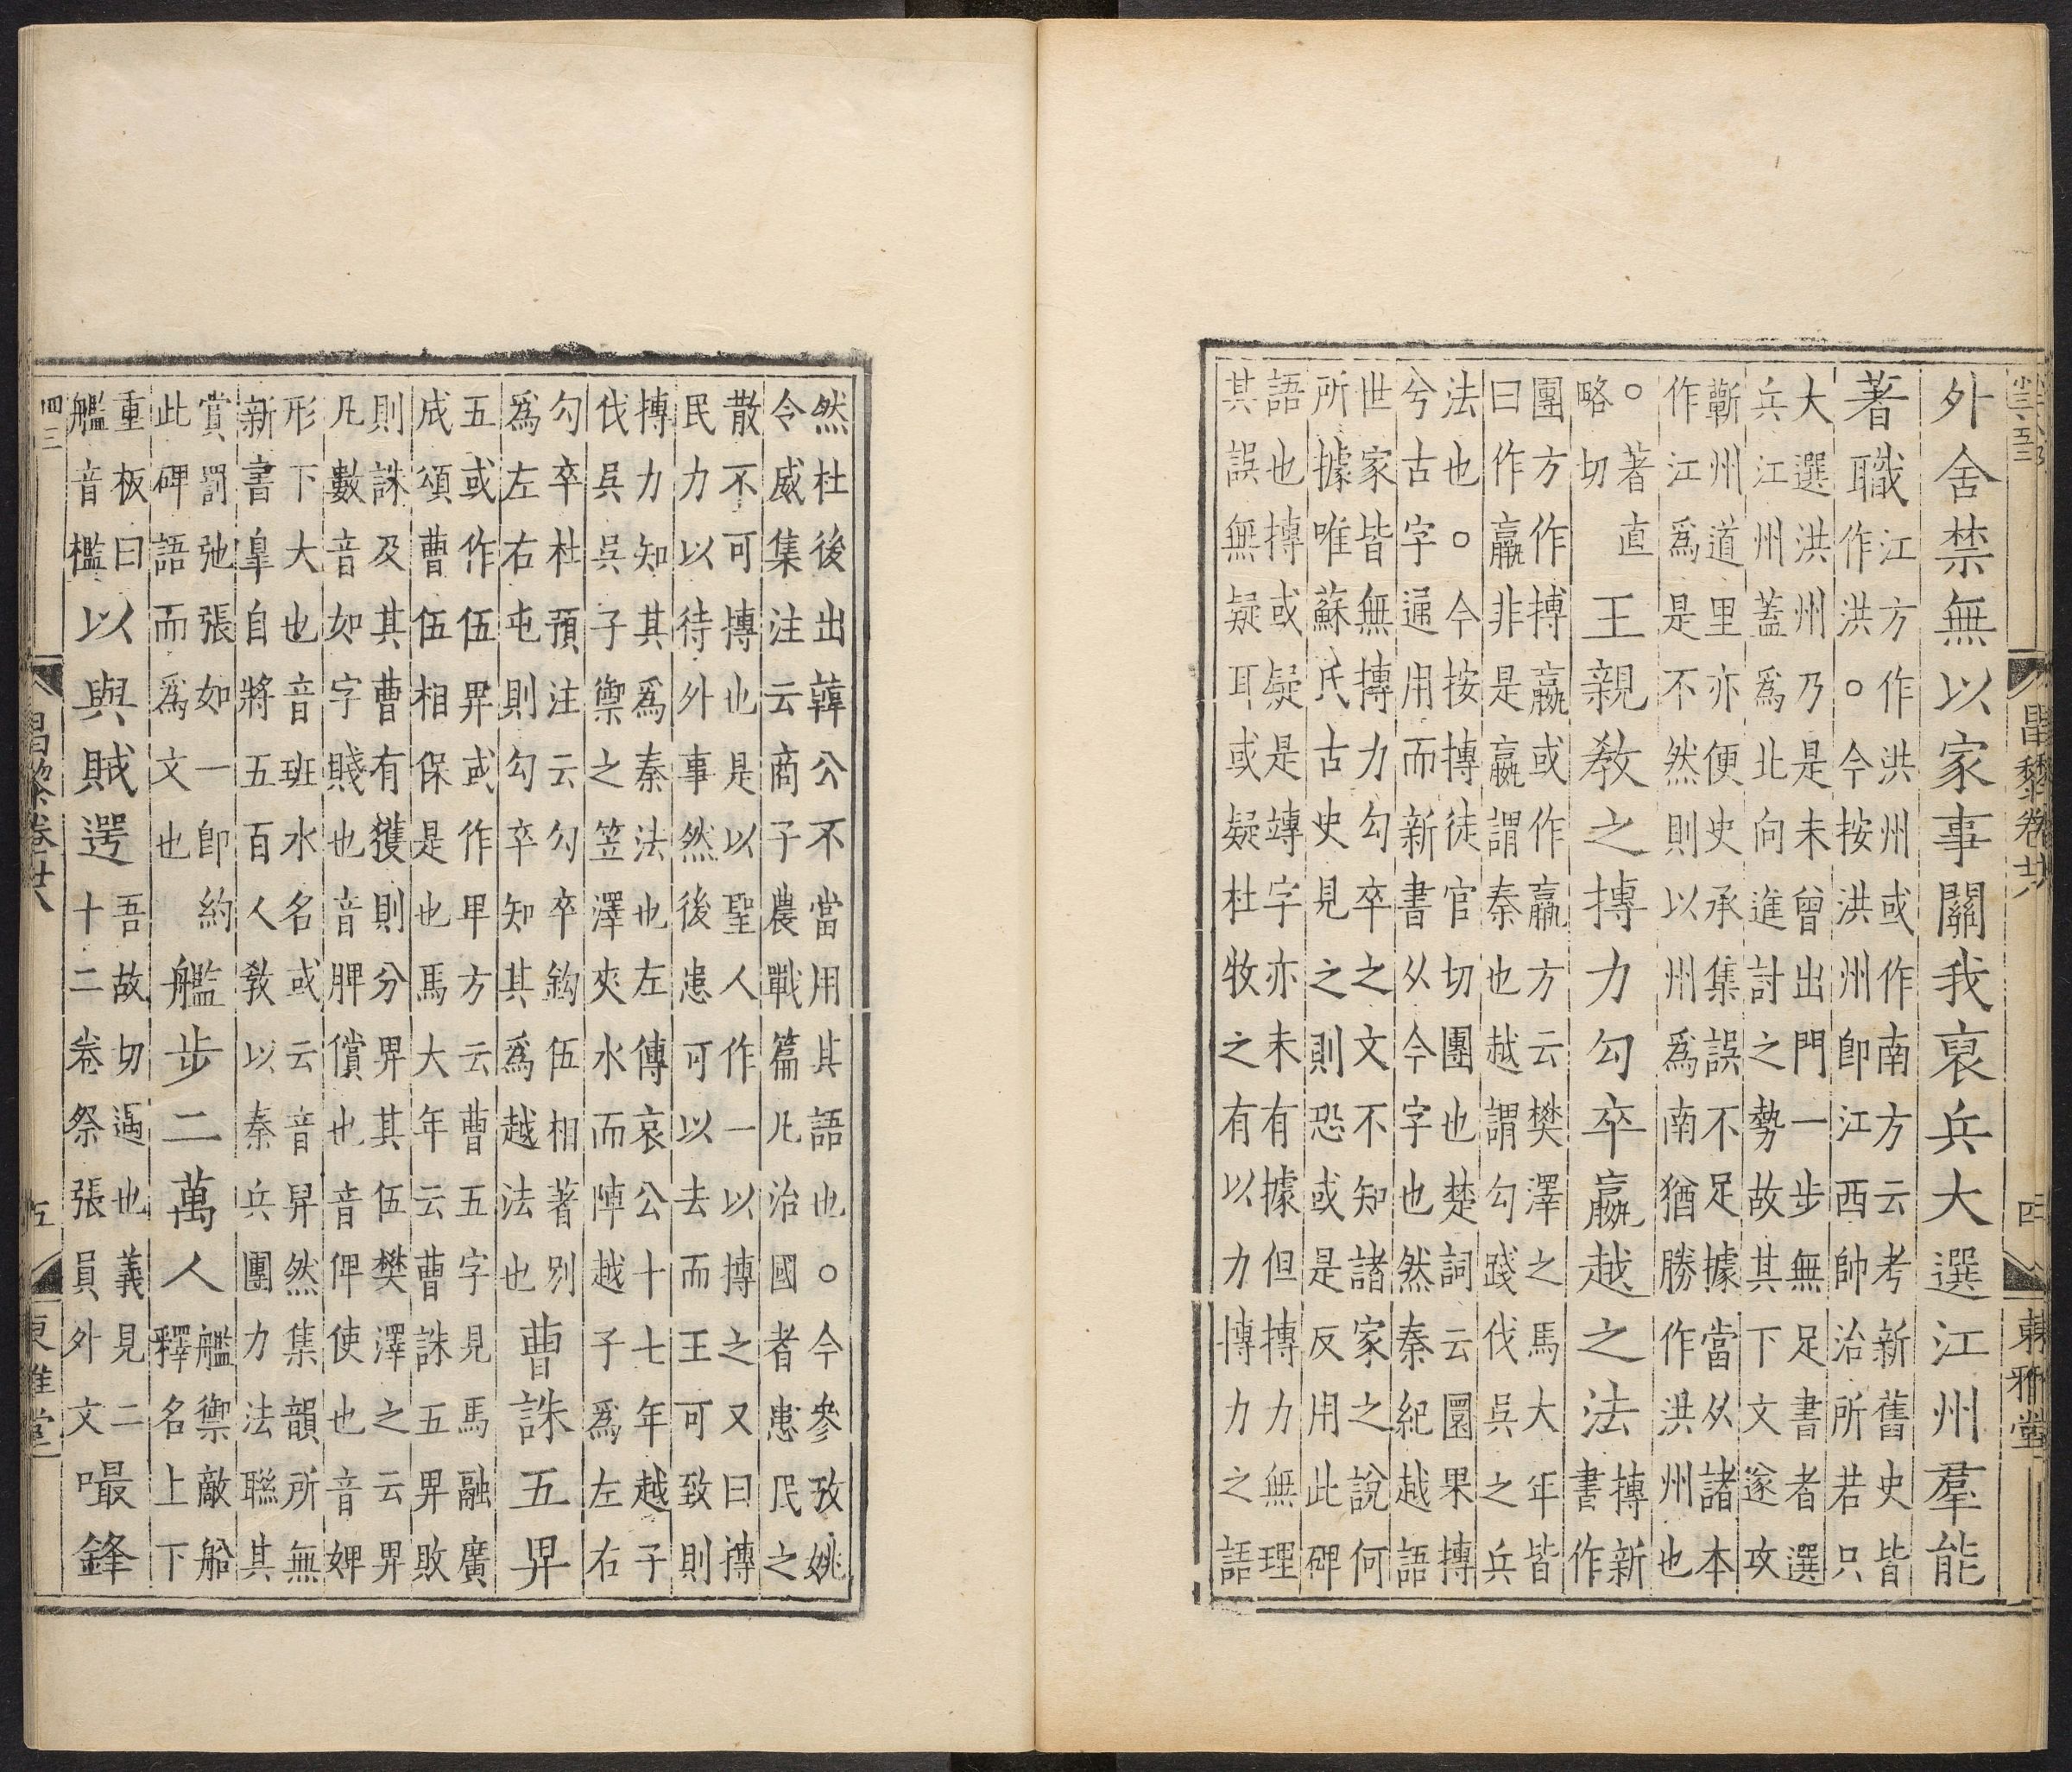 外舍禁無以家事關我裒兵大選江州羣能
著職
江方作洪州或作南方云考新舊史皆
作洪○今按洪州即江西帥治所若只
大選洪州乃是未曾出門一步無足書者選
兵江州蓋爲北向進討之勢故其下文遂攻
蘄州道里亦便史承集誤不足據當从諸本
作江爲是不然則以州爲南猶勝作洪州也
○著直
略切
王親敎之摶力勾卒嬴越之法
摶新
書作
團方作摶嬴或作羸方云樊澤之馬大年皆
曰作羸非是嬴謂秦也越謂勾踐伐吳之兵
法也○今按摶徒官切團也楚詞云圜果摶
兮古字通用而新書从今字也然秦紀越語
世家皆無摶力勾卒之文不知諸家之說何
所據唯蘇氏古史見之則恐或是反用此碑
語也摶或疑是竱字亦未有據但摶力無理
其誤無疑耳或疑杜牧之有以力慱力之語
昌黎卷廿六 四 東雅堂
然杜後出韓公不當用其語也○今參攷姚
令威集注云商子農戰篇凡治國者患民之
散不可摶也是以聖人作一以摶之又曰摶
民力以待外事然後患可以去而王可致則
摶力知其爲秦法也左傳哀公十七年越子
伐吳吳子禦之笠澤夾水而陣越子爲左右
勾卒杜預注云勾卒鉤伍相著別
爲左右屯則勾卒知其爲越法也
曹誅五畀
五或作伍畀或作甲方云曹五字見馬融廣
成頌曹伍相保是也馬大年云曹誅五畀敗
則誅及其曹有獲則分畀其伍樊澤之云畀
凡數音如字賤也音脾償也音俾使也音婢
形下大也音班水名或云音昇然集韻所無
新書皐自將五百人敎以秦兵團力法聯其
賞罰弛張如一卽約
此碑語而爲文也
艦步二萬人
艦禦敵船
釋名上下
重板曰
艦音檻
以與賊遌
吾故切遇也義見二
十二卷祭張員外文
嘬鋒
昌黎卷廿六 五 東雅堂